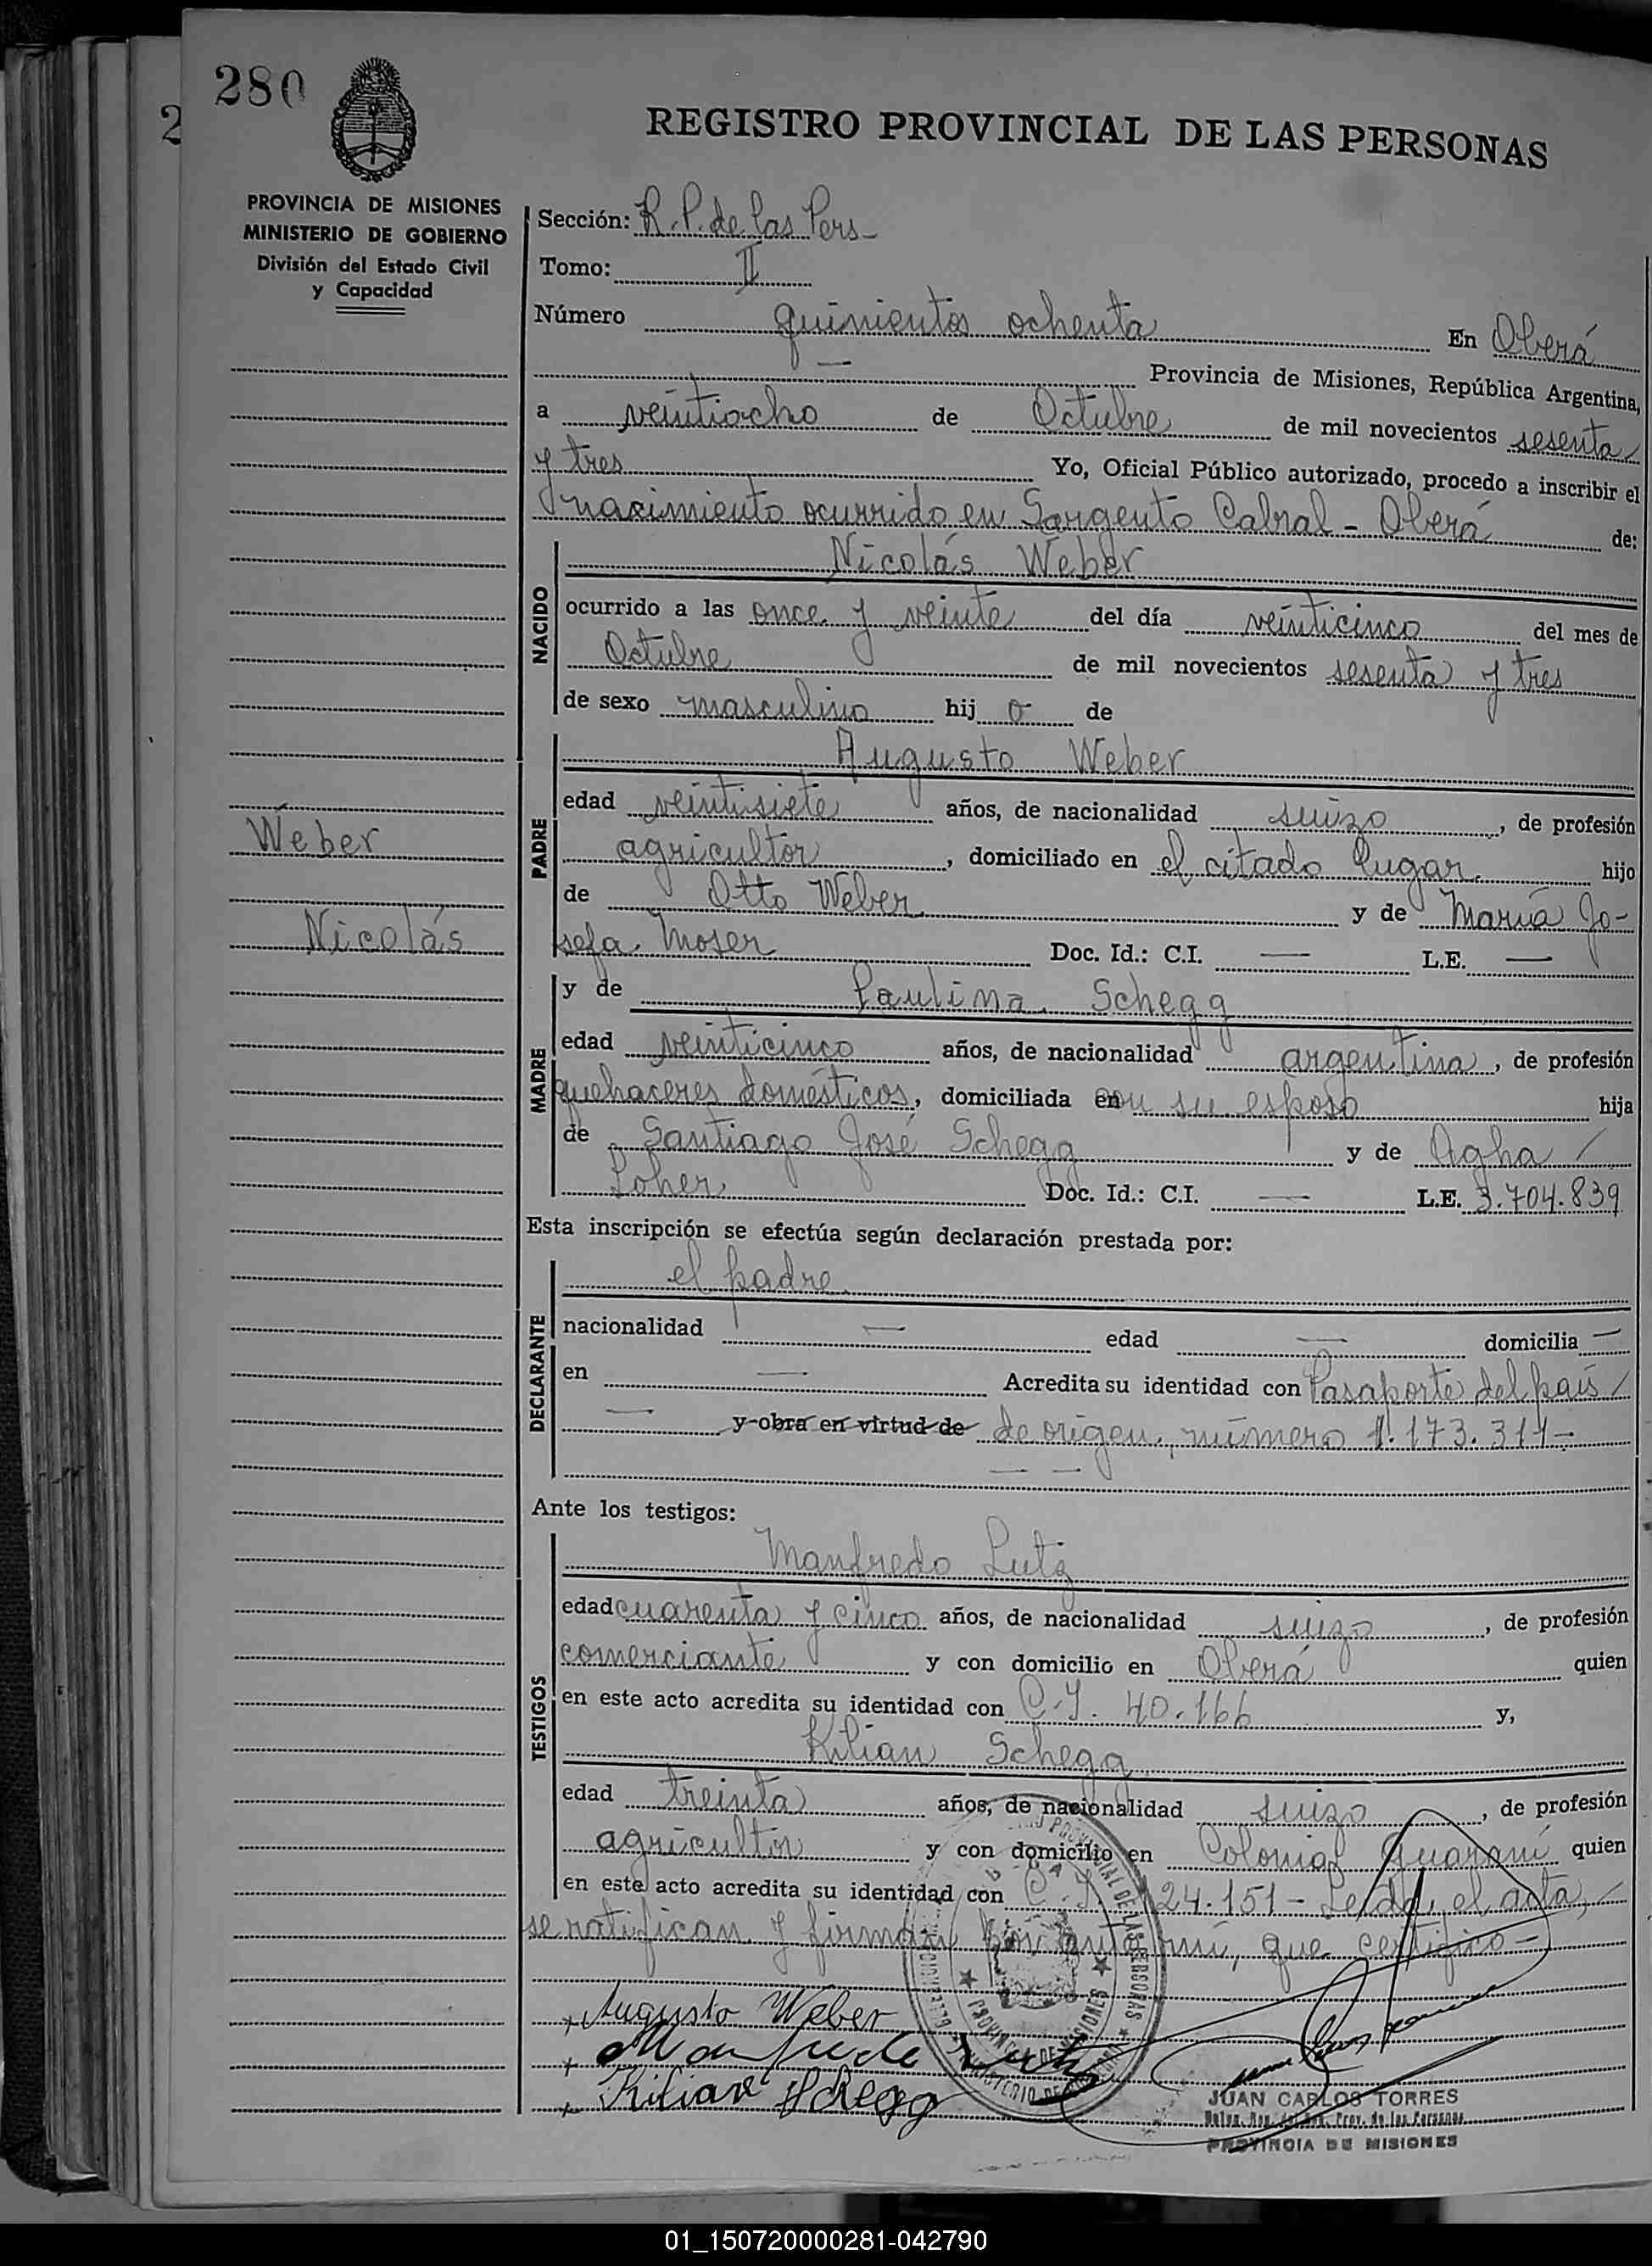 280
REGISTRO PROVINCIAL DE LAS PERSONAS
2
PROVINCIA DE MISIONES
MINISTERIO DE GOBIERNO
División del Estado Civil
y Capacidad
Sección: R. P. de las Pers -
Tomo: II
Número quinientos ochenta En Oberá
— Provincia de Misiones, República Argentina,
a veintiocho de Octubre de mil novecientos sesenta /
y tres Yo, Oficial Público autorizado, procedo a inscribir el
nacimiento ocurrido en Sargento Cabral - Oberá de:
NACIDO
Nicolás Weber
ocurrido a las once y veinte del día veinticinco del mes de
Octubre de mil novecientos sesenta y tres
de sexo masculino hij o de
PADRE
Augusto Weber
edad veintisiete años, de nacionalidad suizo, de profesión
agricultor, domiciliado en el citado lugar. hijo
de Otto Weber y de María Jo-
sefa Moser Doc. Id.: C.I. — L.E. —
Weber
Nicolás
MADRE
y de Paulina Schegg
edad veinticinco años, de nacionalidad argentina, de profesión
quehaceres domésticos, domiciliada en su esposo hija
de Santiago José Schegg y de Agha /
Loher Doc. Id.: C.I. — L.E. 3.704.839
Esta inscripción se efectúa según declaración prestada por:
DECLARANTE
el padre
nacionalidad — edad — domicilia —
en — Acredita su identidad con Pasaporte del país /
— y obra en virtud de de origen, número 1.173.311 -
— —
Ante los testigos:
TESTIGOS
Manfredo Lutz
edad cuarenta y cinco años, de nacionalidad suizo, de profesión
comerciante y con domicilio en Oberá quien
en este acto acredita su identidad con C.I. 40.166 y,
Kilian Schegg
edad treinta años, de nacionalidad suizo, de profesión
agricultor y con domicilio en Colonia Guaraní quien
en este acto acredita su identidad con C. I. 24.151 - Leída el acta, /
se ratifican y firman por ante mí, que certifico -
+ Augusto Weber
+ Manfredo Lutz
+ Kilian Schegg
JUAN CARLOS TORRES
PROVINCIA DE MISIONES
01_150720000281-042790